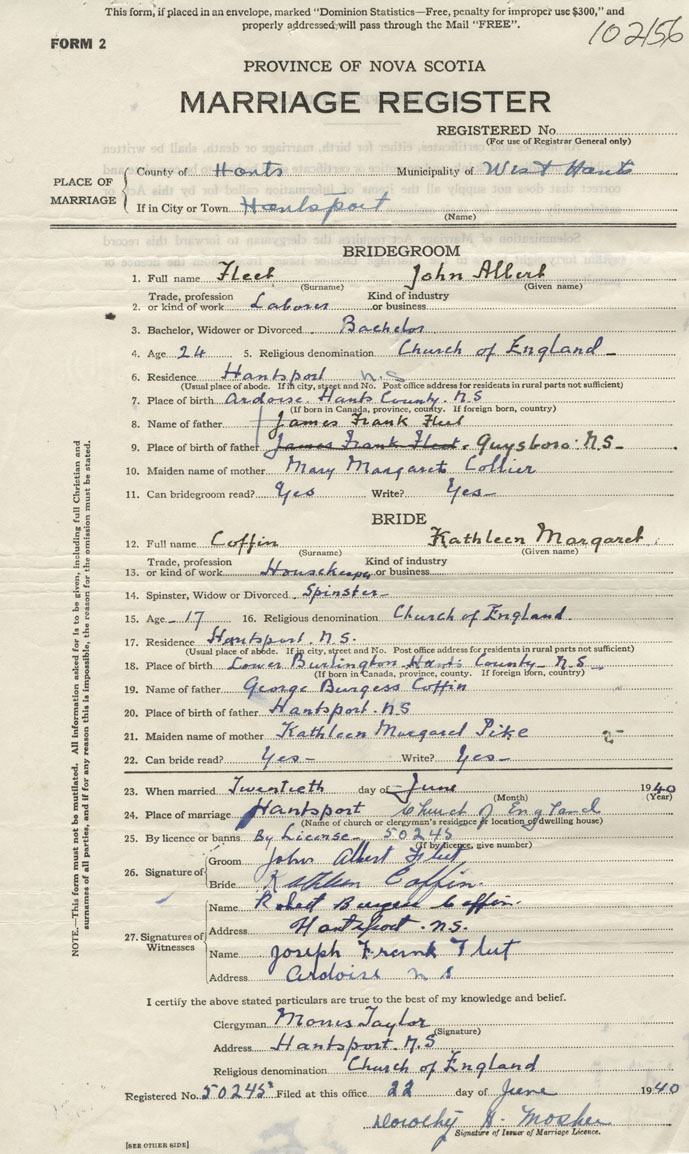 This form, if placed in an envelope, marked "Dominion Statistics—Free, penalty for improper use $300," and
properly addressed will pass through the Mail "FREE".
102156
FORM 2
PROVINCE OF NOVA SCOTIA
MARRIAGE REGISTER
REGISTERED No.
(For use of Registrar General only)
PLACE OF MARRIAGE
County of Hants Municipality of West Hants
If in City or Town Hantsport
(Name)
BRIDEGROOM
1. Full name Fleet John Albert
(Surname) (Given name)
2. Trade, profession or kind of work Laborer Kind of industry or business
3. Bachelor, Widower or Divorced Bachelor
4. Age 24 5. Religious denomination Church of England
6. Residence Hantsport N.S
(Usual place of abode. If in city, street and No. Post office address for residents in rural parts not sufficient)
7. Place of birth Ardoise. Hants County. N.S
(If born in Canada, province, county. If foreign born, country)
8. Name of father James Frank Fleet
9. Place of birth of father James Frank Fleet. Guysboro: N.S
10. Maiden name of mother Mary Margaret Collier
11. Can bridegroom read? Yes Write? Yes
BRIDE
12. Full name Coffin Kathleen Margaret
(Surname) (Given name)
13. Trade, profession or kind of work Housekeeper Kind of industry or business
14. Spinster, Widow or Divorced Spinster
15. Age 17 16. Religious denomination Church of England.
17. Residence Hantsport. N.S.
(Usual place of abode. If in city, street and No. Post office address for residents in rural parts not sufficient)
18. Place of birth Lower Burlington Hants County N.S
(If born in Canada, province, county. If foreign born, country)
19. Name of father George Burgess Coffin
20. Place of birth of father Hantsport. N.S
21. Maiden name of mother Kathleen Margaret Pike
22. Can bride read? Yes Write? Yes
23. When married Twentieth day of June 1940
(Month) (Year)
24. Place of marriage Hantsport Church of England
(Name of church or clergyman's residence or location of dwelling house)
25. By licence or banns By License 50245
(If by licence, give number)
26. Signature of
Groom John Albert Fleet
Bride Kathleen Coffin.
27. Signatures of Witnesses
Name Robert Burgess Coffin.
Address Hantsport. N.S.
Name Joseph Frank Fleet
Address Ardoise N S
I certify the above stated particulars are true to the best of my knowledge and belief.
Clergyman Morris Taylor
(Signature)
Address Hantsport. N.S
Religious denomination Church of England
Registered No. 50245 Filed at this office 22 day of June 1940
Dorothy A. Mosher
Signature of Issuer of Marriage Licence.
[SEE OTHER SIDE]
NOTE.—This form must not be mutilated. All information asked for is to be given, including full Christian and
surnames of all parties, and if for any reason this is impossible, the reason for the omission must be stated.